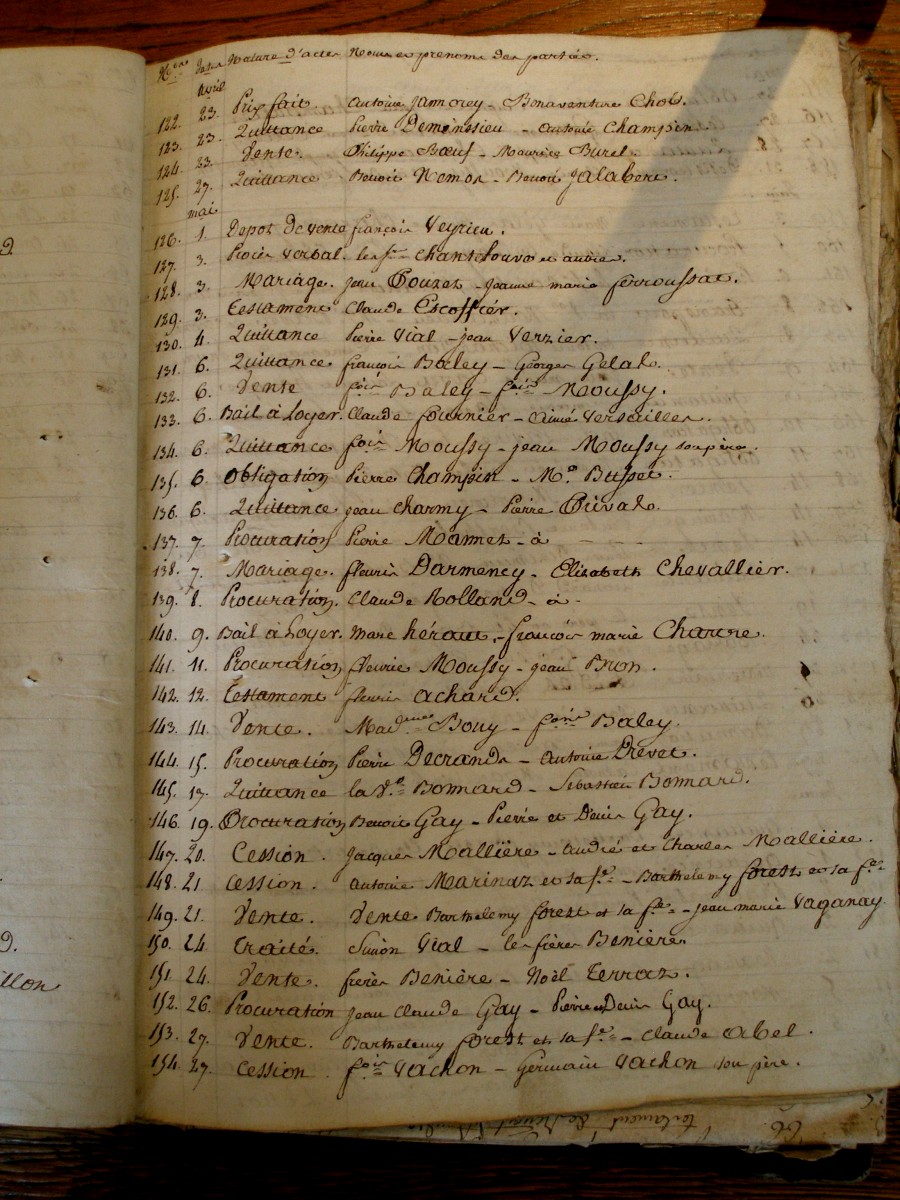 N.os Dates Nature d'actes Noms et prénoms des parties.
avril
122. 23. Prix fait. Antoine Jamorey - Bonaventure Chol.
123. 23. Quittance Pierre Deminssieu - Antoine Champin.
124. 23. Vente. Philippe Bœuf - Maurice Burel.
125. 27. Quittance Benoit Nemos - Benoit Jalabert.
mai
126. 1. Depot de vente françois Veyrieu.
127. 3. Procès verbal. le Sr chantelouve et autres.
128. 3. Mariage. jean Pouzet - jeanne marie ferroussat.
129. 3. Testament Claude Escoffier.
130. 4. Quittance Pierre Vial - jean Verzier.
131. 6. Quittance françois Baley - Georges Gelas.
132. 6. Vente fçois Baley - fçois Moussy.
133. 6. Bail à Loyer. Claude fournier - Aimé Versailles.
134. 6. Quittance fçois Moussy - jean Moussy son père.
135. 6. Obligation Pierre Champin - M.e Busset.
136. 6. Quittance jean charmy - Pierre Privat.
137. 7. Procuration Pierre Mamet - à - - -
138. 7. Mariage. fleurie Darmency - Elisabeth Chevallier.
139. 8. Procuration. Claude Rolland - à -
140. 9. Bail à Loyer. Marc héraut - françois marie Chartre.
141. 11. Procuration fleurie Moussy - jean Bron.
142. 12. Testament fleurie achard.
143. 14. Vente. Mad. Bouy - fçois Baley.
144. 15. Procuration Pierre Decrands - Antoine Prevet.
145. 17. Quittance la Ve Bonnard - Sébastien Bonnard.
146. 19. Procuration Benoit Gay - Pierre et Denis Gay.
147. 20. Cession. Jacques Mallière - André et Charles Mallière.
148. 21 cession. antoine Marinaz et sa fe - Barthelemy forest et sa fe
149. 21. Vente. Vente Barthelemy forest et sa fe - jean marie Vaganay
150. 24. Traité. Simon Vial - les frères Benière
151. 24. Vente. frères Benière - Noël Terraz.
152. 26. Procuration jean claude Gay - Pierre et Denis Gay.
153. 27. Vente. Barthelemy forest et sa fe - Claude Abel.
154. 27. Cession. fçois Vachon - Germain Vachon son père.